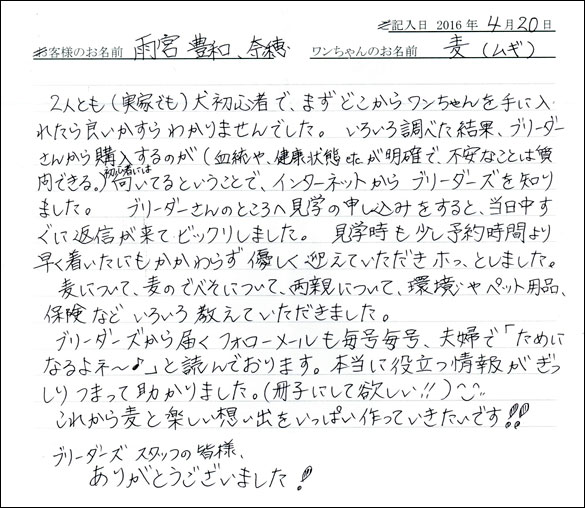 記入日 2016年 4月20日
お客様のお名前 雨宮 豊和、奈穂 ワンちゃんのお名前 麦（ムギ）
2人とも（実家でも）犬初心者で、まずどこからワンちゃんを手に入
れたら良いかすらわかりませんでした。 いろいろ調べた結果、ブリーダー
さんから購入するのが（血統や、健康状態etcが明確で、不安なことは質
問できる。）初心者には向いてるということで、インターネットからブリーダーズを知り
ました。 ブリーダーさんのところへ見学の申し込みをすると、当日中す
ぐに返信が来てビックリしました。 見学時も少し予約時間より
早く着いたにもかかわらず優しく迎えていただきホッ、としました。
麦について、麦のでべそについて、両親について、環境やペット用品、
保険などいろいろ教えていただきました。
ブリーダーズから届くフォローメールも毎号毎号、夫婦で「ために
なるよネ〜♪」と読んでおります。本当に役立つ情報がぎっ
しりつまって助かりました。（冊子にして欲しい!!）
これから麦と楽しい想い出をいっぱい作っていきたいです!!
ブリーダーズ スタッフの皆様、
ありがとうございました!